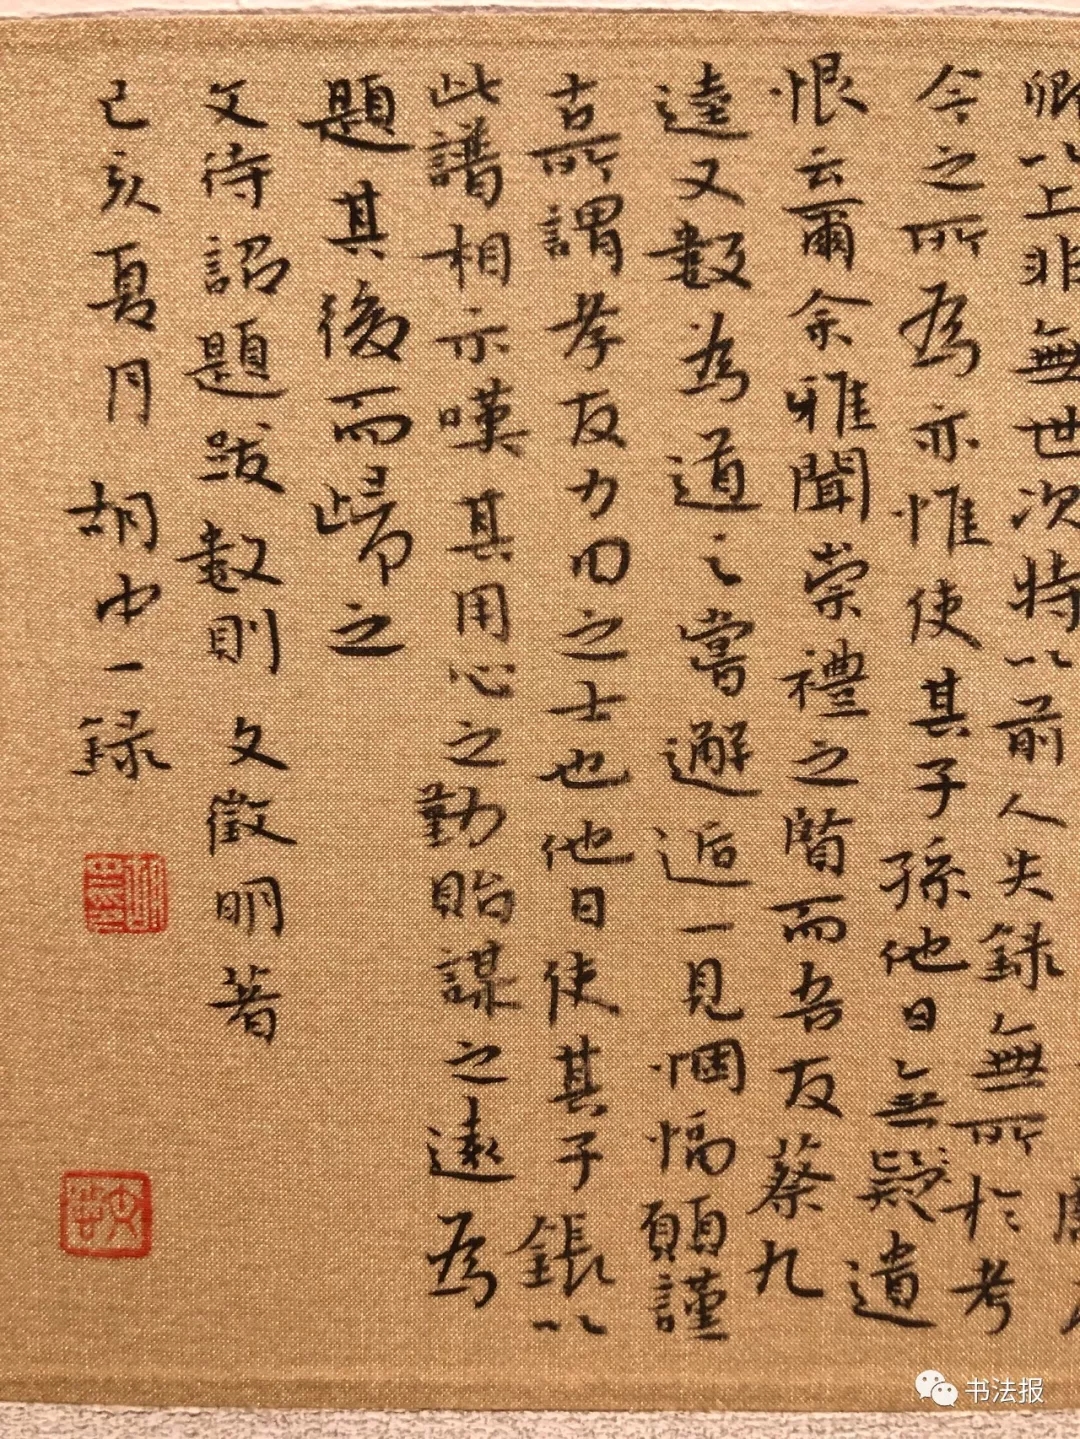 卿以上非無世次特以前人失録無所於考
今之所為亦惟使其子孫他日無疑遺
恨云爾余雅聞崇禮之賢而吾友蔡九
逵又數為道之嘗邂逅一見悃愊願謹
古所謂孝友力田之士也他日使其子鋹以
此譜相示嘆其用心之勤貽謀之遠為
題其後而歸之
文待詔題跋數則 文徵明著
己亥夏月 胡中一録
书法报